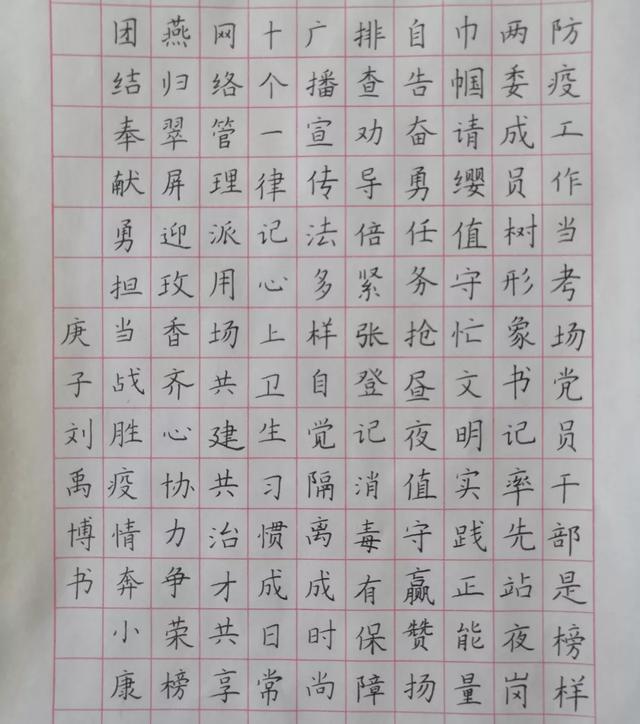 防疫工作当考场党员干部是榜样
两委成员树形象书记率先站夜岗
巾帼请缨值守忙文明实践正能量
自告奋勇任务抢昼夜值守赢赞扬
排查劝导倍紧张登记消毒有保障
广播宣传法多样自觉隔离成时尚
十个一律记心上卫生习惯成日常
网络管理派用场共建共治才共享
燕归翠屏迎玫香齐心协力争荣榜
团结奉献勇担当战胜疫情奔小康
庚子刘禹博书